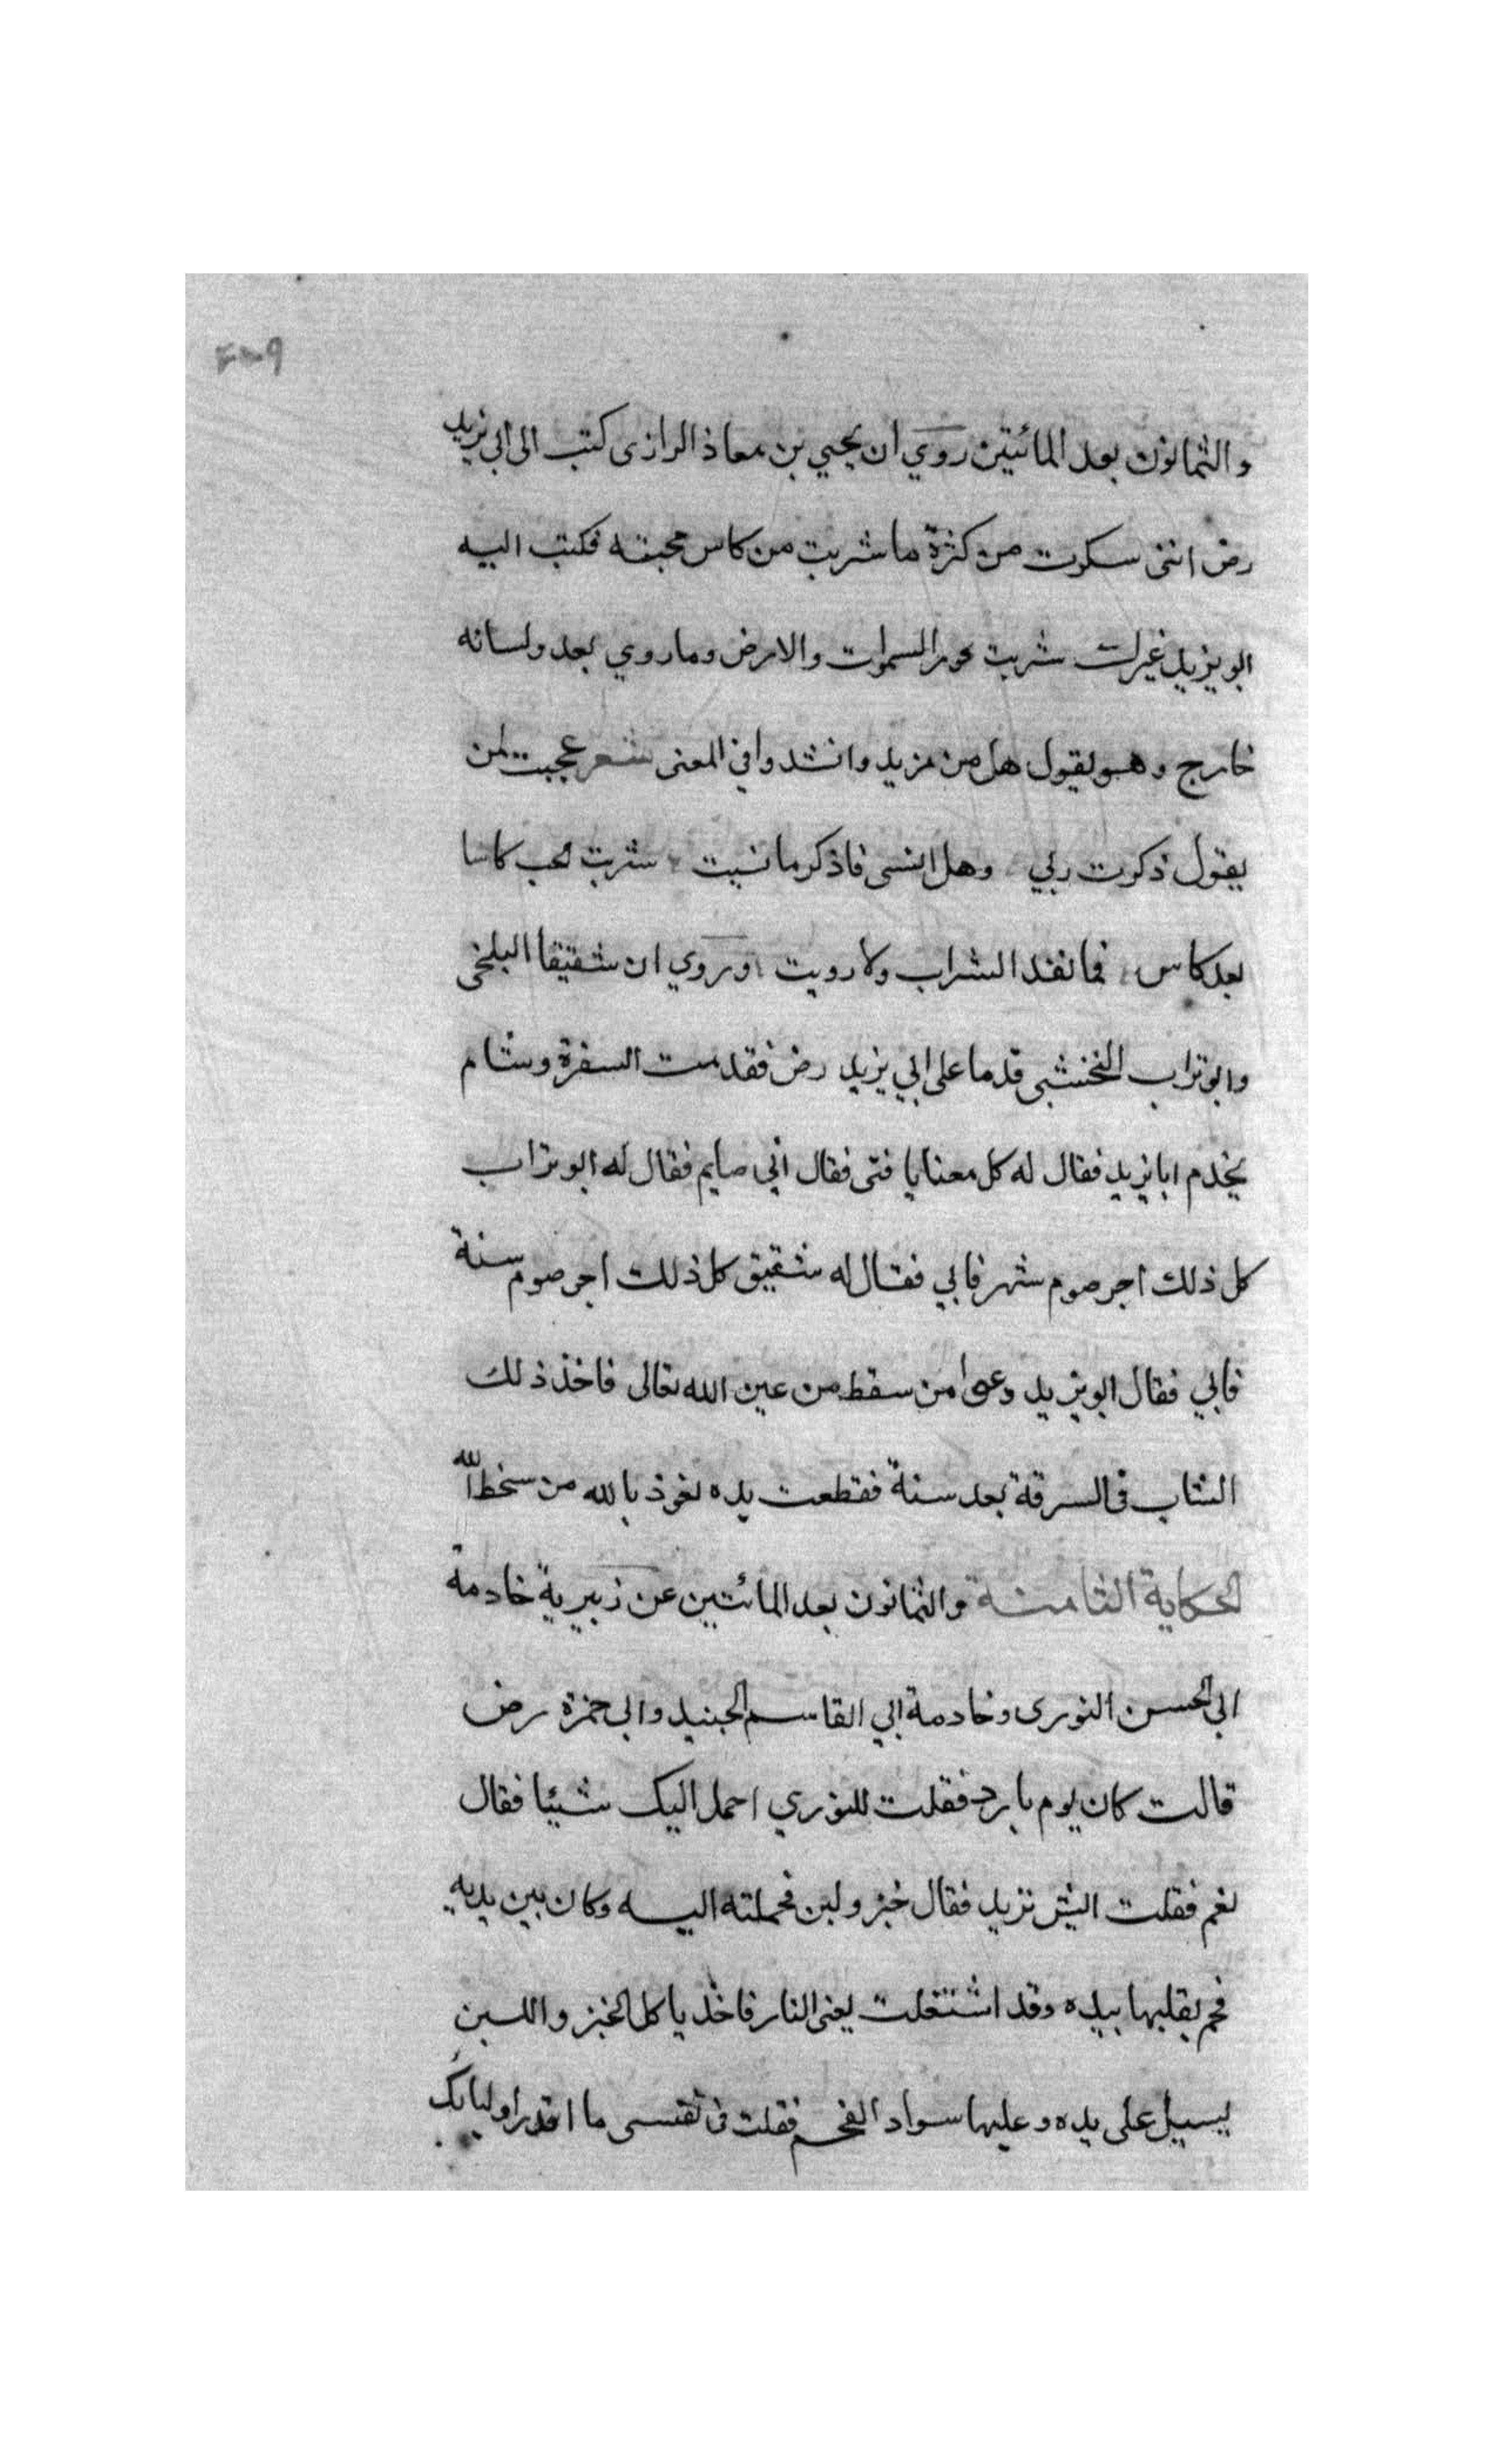 والثمانون بعد المائتين روي ان يحيي بن معاذ الرازى كتب الى ابي يزيد
رض اننى سكرت من كثرة ما شربت من كاس محبته فكتب اليه
ابو يزيد غيرك شربت بحور السموات والارض وما روي بعد ولسانه
خارج وهو يقول هل من مزيد وانشدوا في المعنى شعر عجبت لمن
يقول ذكرت ربي وهل انسى فاذكر ما نسيت شربت لحب كاسا
بعد كاس فما نفد الشراب ولا رويت وروي ان شقيقا البلخى
وابو تراب النخشبى قدما على ابي يزيد رض فقدمت السفرة وشام
يخدم ابا يزيد فقال له كل معنا يا فتى فقال انى صايم فقال له ابو تراب
كل ذلك اجر صوم شهر فابي فقال له شقيق كل ذلك اجر صوم سنة
فابي فقال ابو يزيد دعوا من سقط من عين الله تعالى فاخذ ذلك
الشاب فى السرقة بعد سنة فقطعت يده نعوذ بالله من سخط الله
الحكاية الثامنة والثمانون بعد المائتين عن زبيرية خادمة
ابى الحسن النورى وخادمة ابي القاسم الجنيد وابى حمزة رض
قالت كان يوم بارد فقلت للنوري احمل اليك شيئا فقال
نعم فقلت ايش تريد فقال خبز ولبن فحملته اليه وكان بين يديه
فحم يقلبها بيده وقد اشتغلت يعنى النار فاخذ ياكل الخبز واللبن
يسيل على يده وعليها سواد الفحم فقلت فى نفسى ما اقذر اوليائك